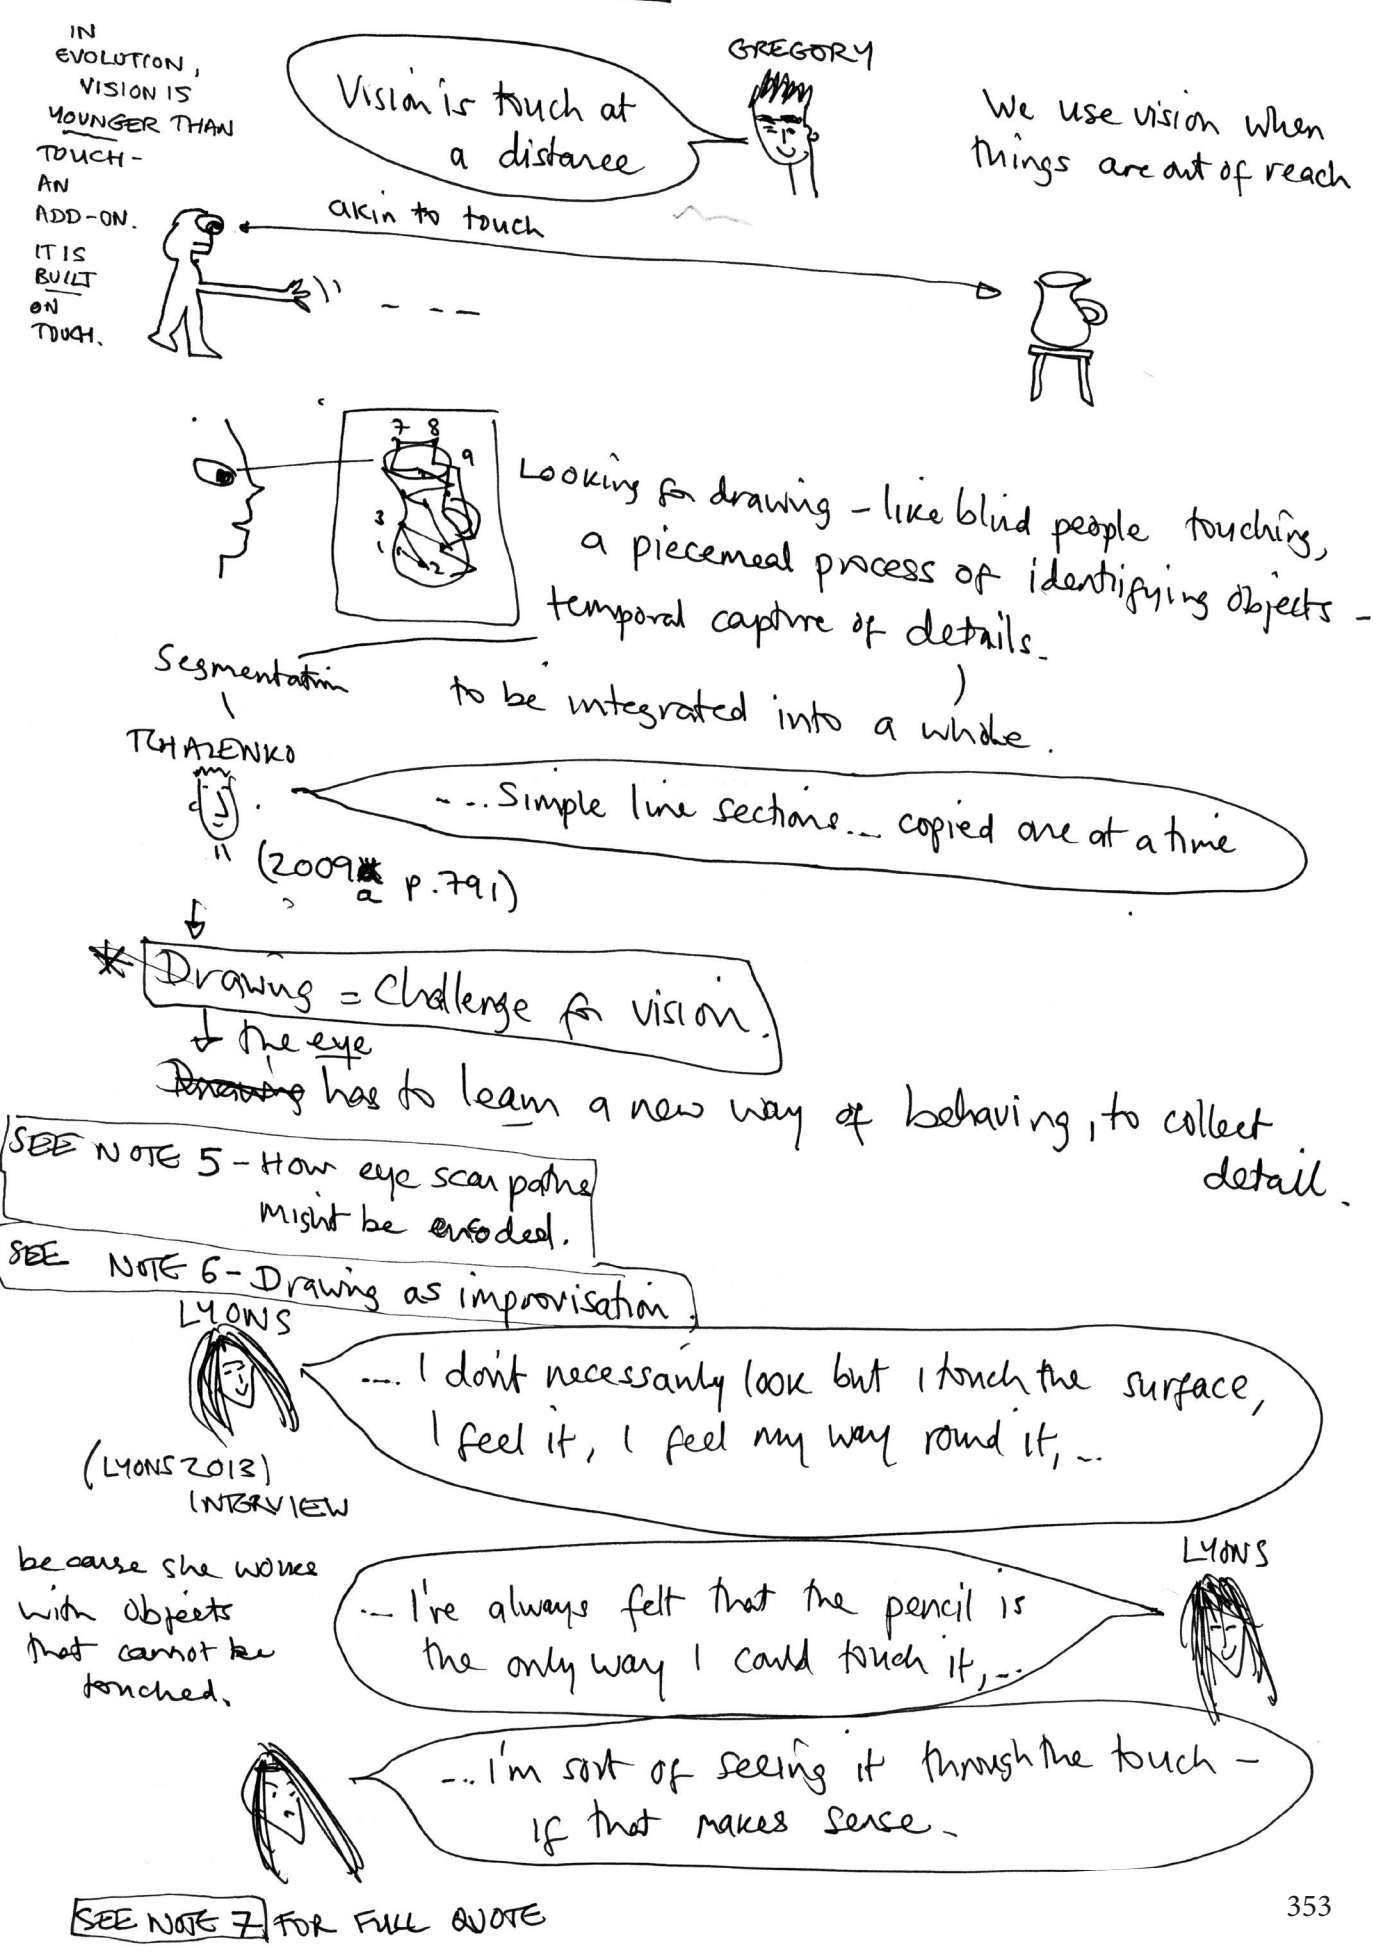 IN
EVOLUTION,
VISION IS
YOUNGER THAN
TOUCH-
AN
ADD-ON.
IT IS
BUILT
ON
TOUCH.
GREGORY
Vision is touch at
a distance
We use vision when
things are out of reach
akin to touch
7 8
9
3
1 2
Looking for drawing - like blind people touching,
a piecemeal process of identifying objects -
temporal capture of details.
Segmentation
to be integrated into a whole.
TCHALENKO
.... Simple line sections... copied one at a time
(2009 a p.791)
* Drawing = Challenge for vision.
the eye
Drawing has to learn a new way of behaving, to collect
detail.
SEE NOTE 5 - How eye scan paths
might be encoded.
SEE NOTE 6 - Drawing as improvisation.
LYONS
.... I don't necessarily look but I touch the surface,
I feel it, I feel my way round it, ...
(LYONS 2013)
INTERVIEW
because she works
with objects
that cannot be
touched.
LYONS
... I've always felt that the pencil is
the only way I could touch it, ...
... I'm sort of seeing it through the touch -
if that makes sense -
SEE NOTE 7 FOR FULL QUOTE
353